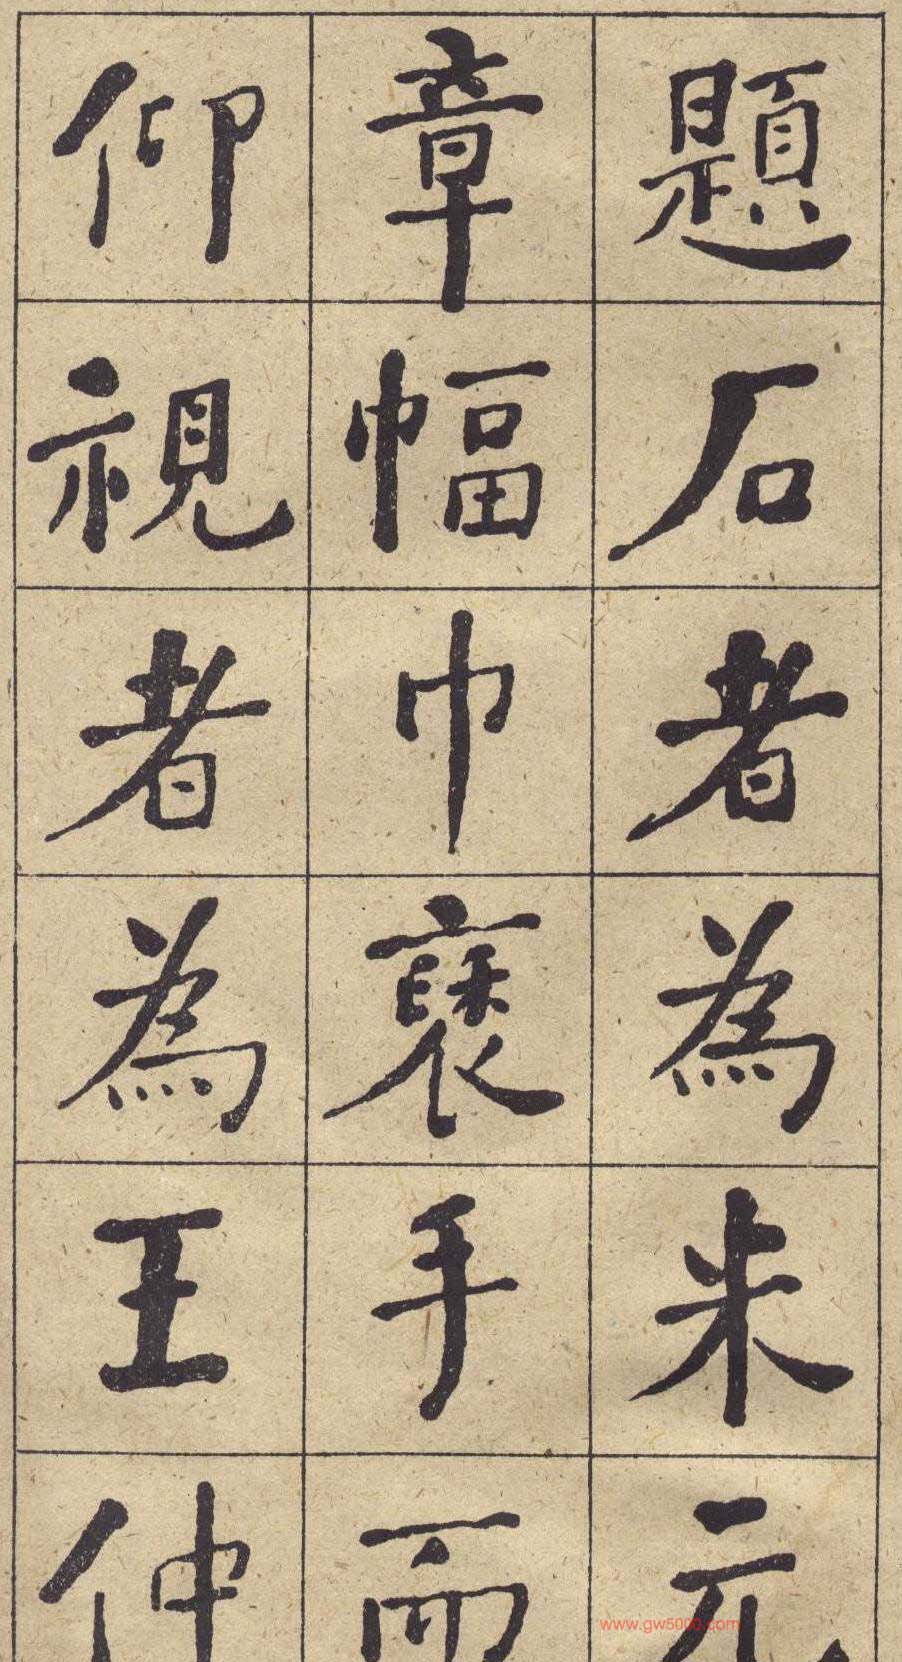 題石者為米元
章幅巾褎手而
仰視者為王仲
www.gw5000.com